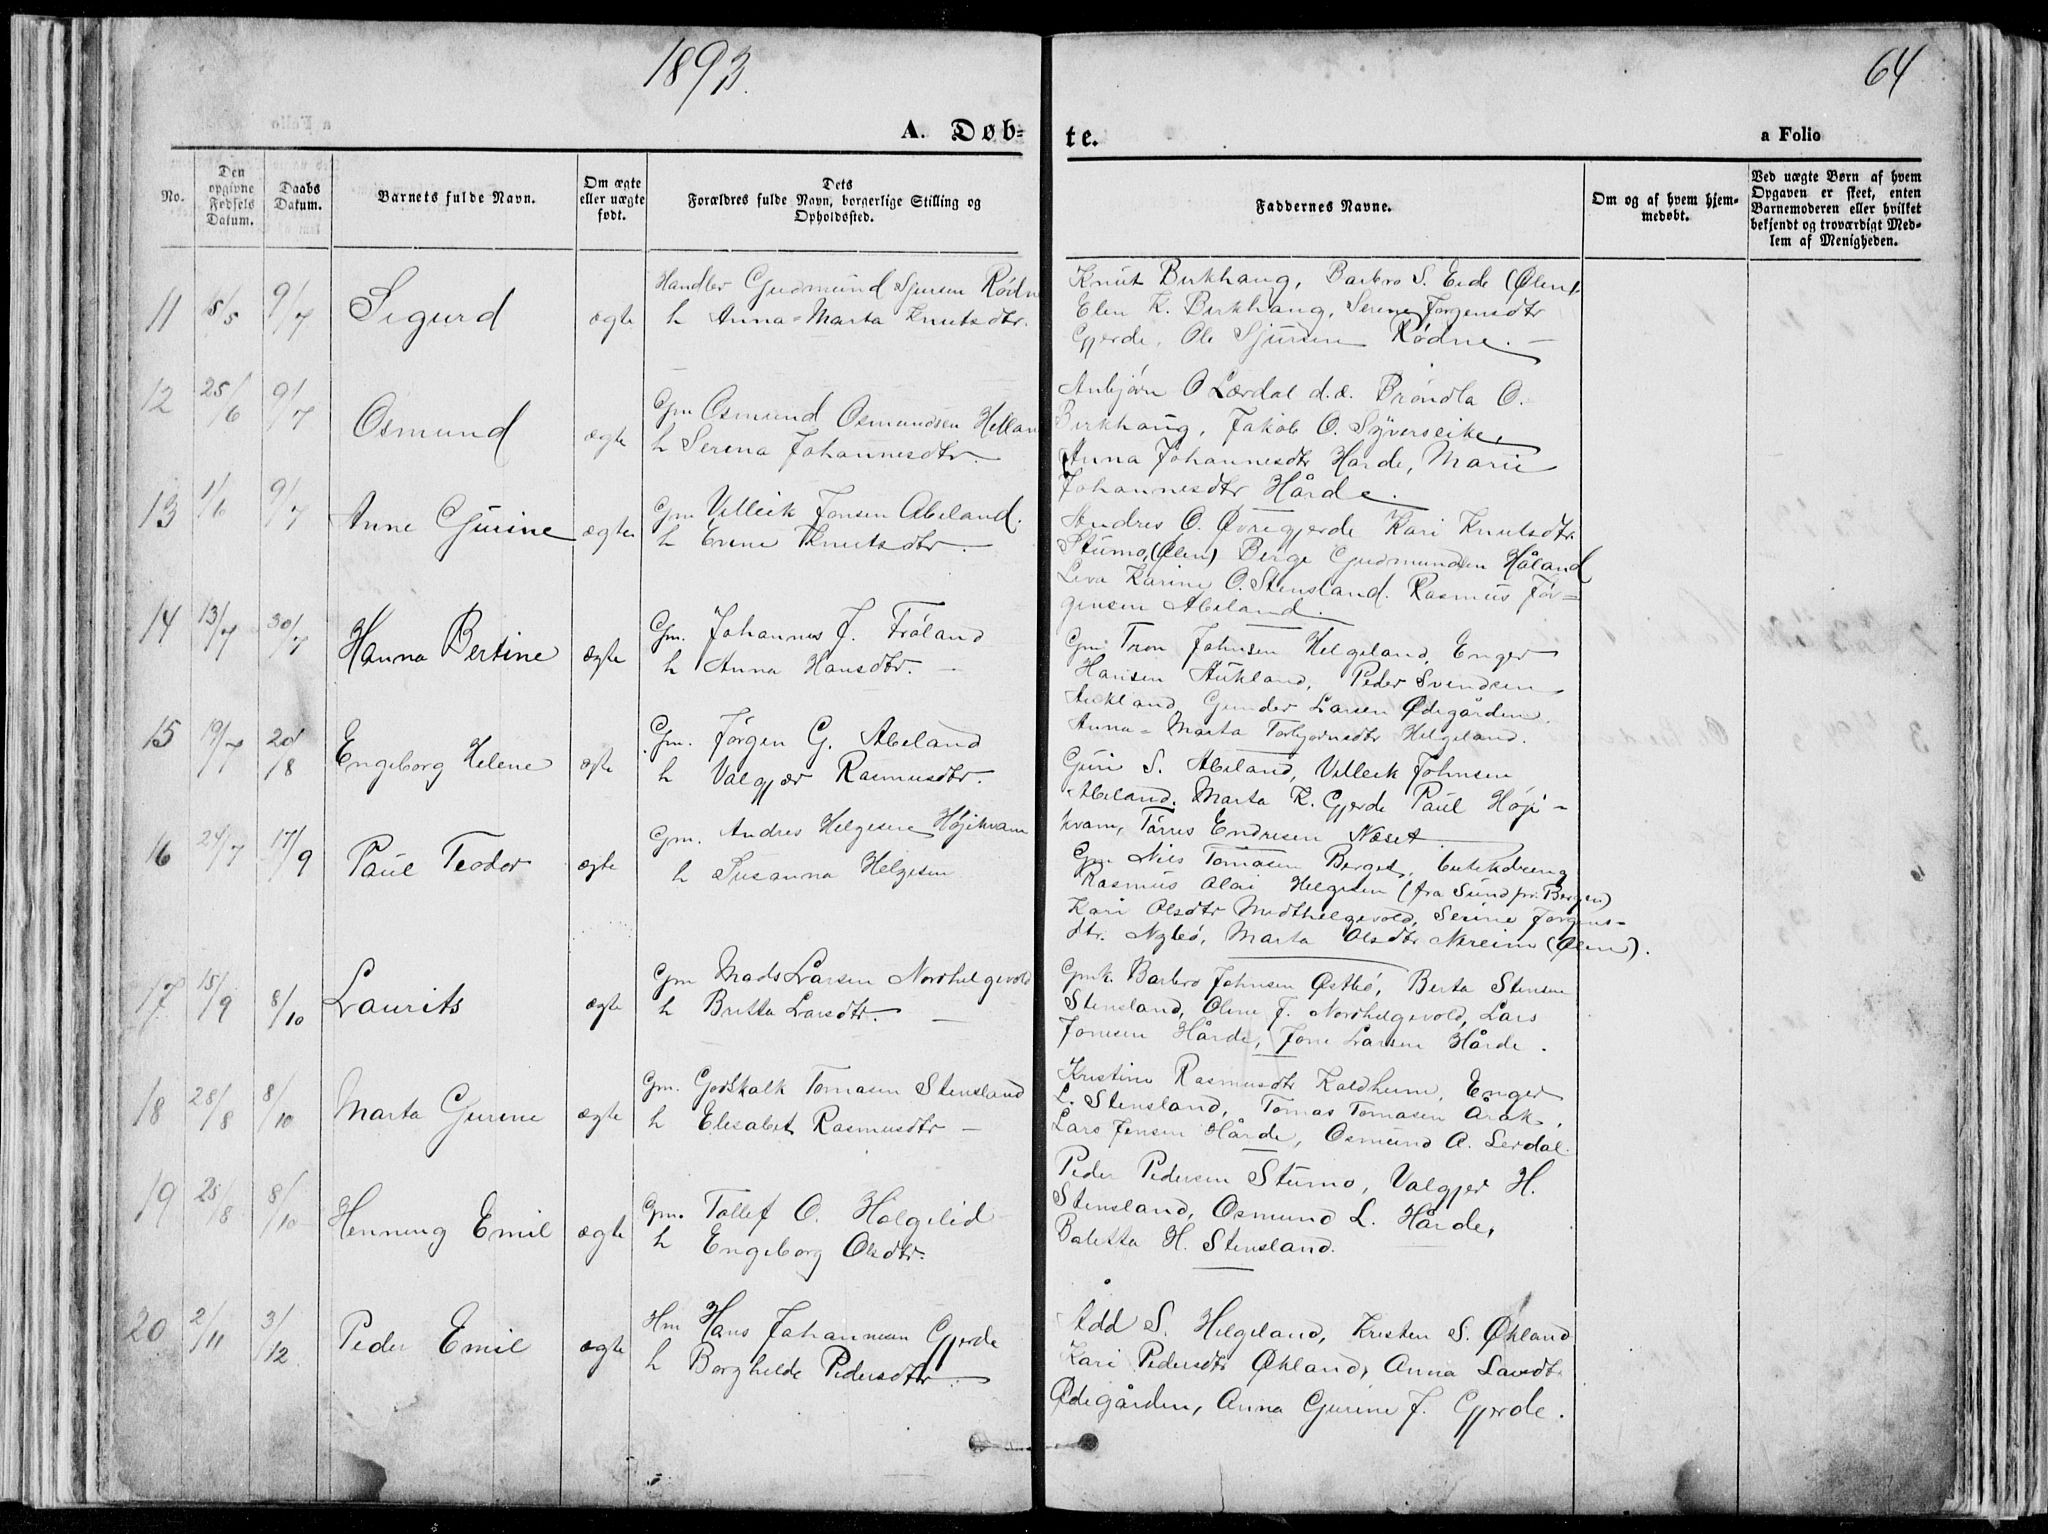 1893.
64
A. Døb-
te.
a Folio
No.
Den opgivne Fødsels Datum.
Daabs Datum.
Barnets fulde Navn.
Om ægte eller uægte født.
Dets Forældres fulde Navn, borgerlige Stilling og Opholdssted.
Faddernes Navne.
Om og af hvem hjemmedøbt.
Ved uægte Børn af hvem Opgaven er skeet, enten Barnemoderen eller hvilket bekjendt og troværdigt Medlem af Menigheden.
11 5/5 9/7 Sigurd ægte
Handler Gudmund Sjursen Rødne
h Anna-Marta Knutsdtr.
Knut Birkhaug, Barbro S. Eide (Ølen),
Elen K. Birkhaug, Serine Jørgensdtr
Gjerde, Ole Sjursen Rødne. —
12 25/6 9/7 Osmund ægte
Gm Osmund Osmundsen Helland
h Serina Johannesdtr.
Anbjørn O Lærdal d.æ. Brøndla O.
Birkhaug, Jakob O. Syverseike,
Anna Johannesdtr Harde, Marie
Johannesdtr Hårde.
13 1/6 9/7 Anne Gurine ægte
Gm Villeik Jonsen Abeland.
h Enne Knutsdtr.
Andres O. Øvregjerde Kari Knutsdtr
Stumo, (Ølen) Berge Gudmundsen Håland
Liva Karine O. Stensland. Rasmus Jør=
gensen Abeland.
14 13/7 30/7 Hanna Bertine ægte
Gm. Johannes J. Frøland
h Anna Hansdtr. —
Gm Tron Johnsen Helgeland, Enger
Hansen Aukland, Peder Svendsen
Aukland Gunder Larsen Ødegården.
Anna-Marta Torbjørnsdtr Helgeland.
15 19/7 20/8 Engeborg Helene ægte
Gm. Jørgen G. Abeland
h Valgjær Rasmusdtr.
Guri S. Abeland, Villeik Johnsen
Abeland. Marta K. Gjerde Paul Høji-
kvam, Tørres Endresen Næset.
16 24/7 17/9 Paul Teodor ægte
Gm. Andres Helgesen Højikvam
h Susanna Helgesen
Gm Nils Tomasen Berget, butikdreng
Rasmus Olai Helgesen (fra Sund pr. Bergen)
Kari Olsdtr Midthelgevold, Serine Jørgens-
dtr. Nybø, Marta Olsdtr Nereim (Ølen).
17 15/9 8/10 Laurits ægte
Gm Mads Larsen Nordhelgevold
h Britta Larsdtr. —
Gmk. Barbro Johnsen Østbø, Berta Stensen
Stensland, Oline J. Nordhelgevold, Lars
Jonesen Hårde, Jone Larsen Hårde.
18 28/8 8/10 Marta Gurine ægte
Gm. Godskalk Tomasen Stensland
h Elesabet Rasmusdtr —
Kristine Rasmusdtr Kaldheim, Enger
L. Stensland, Tomas Tomasen Årak,
Lars Jensen Hårde, Osmund A. Lerdal.
19 25/8 8/10 Henning Emil ægte
Gm. Tollef O. Halgelid
h Engeborg Olsdtr.
Peder Pedersen Stumo, Valgjer H.
Stensland, Osmund L. Hårde,
Baletta H. Stensland.
20 2/11 3/12 Peder Emil ægte
Hm Hans Johannesen Gjerde
h Borghilde Pedersdtr.
Ådd S. Helgeland, Kristen S. Økland
Kari Pedersdtr Økland, Anna Larsdtr
Ødegården, Anna Gurine J. Gjerde.